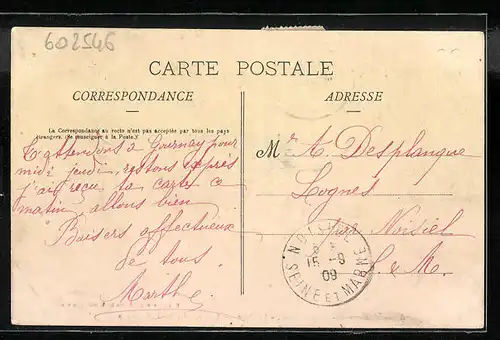 602546
CARTE POSTALE
CORRESPONDANCE
ADRESSE
La Correspondance au recto n'est pas acceptée par tous les pays
étrangers. (Se renseigner à la Poste.)
T'attendons à Gournay pour
midi jeudi, restons exprès
j'ai reçu ta carte ce
matin, allons bien
Baisers affectueux
de tous
Marthe
Mr A. Desplanque
Lognes
par Noisiel
S & M.
NOISIEL
15 -9
09
SEINE ET MARNE